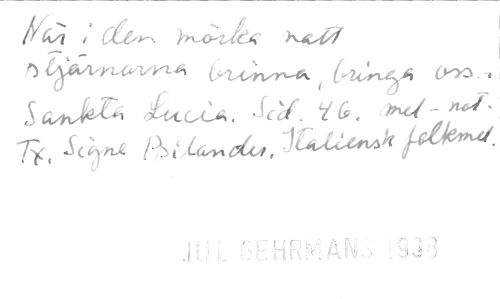 När i den mörka natt
stjärnorna brinna, bringa oss..
Sankta Lucia. Sid. 46. mel-not.
Tx. Signe Psilander. Italiensk folkmel.
JUL GEHRMANS 1938